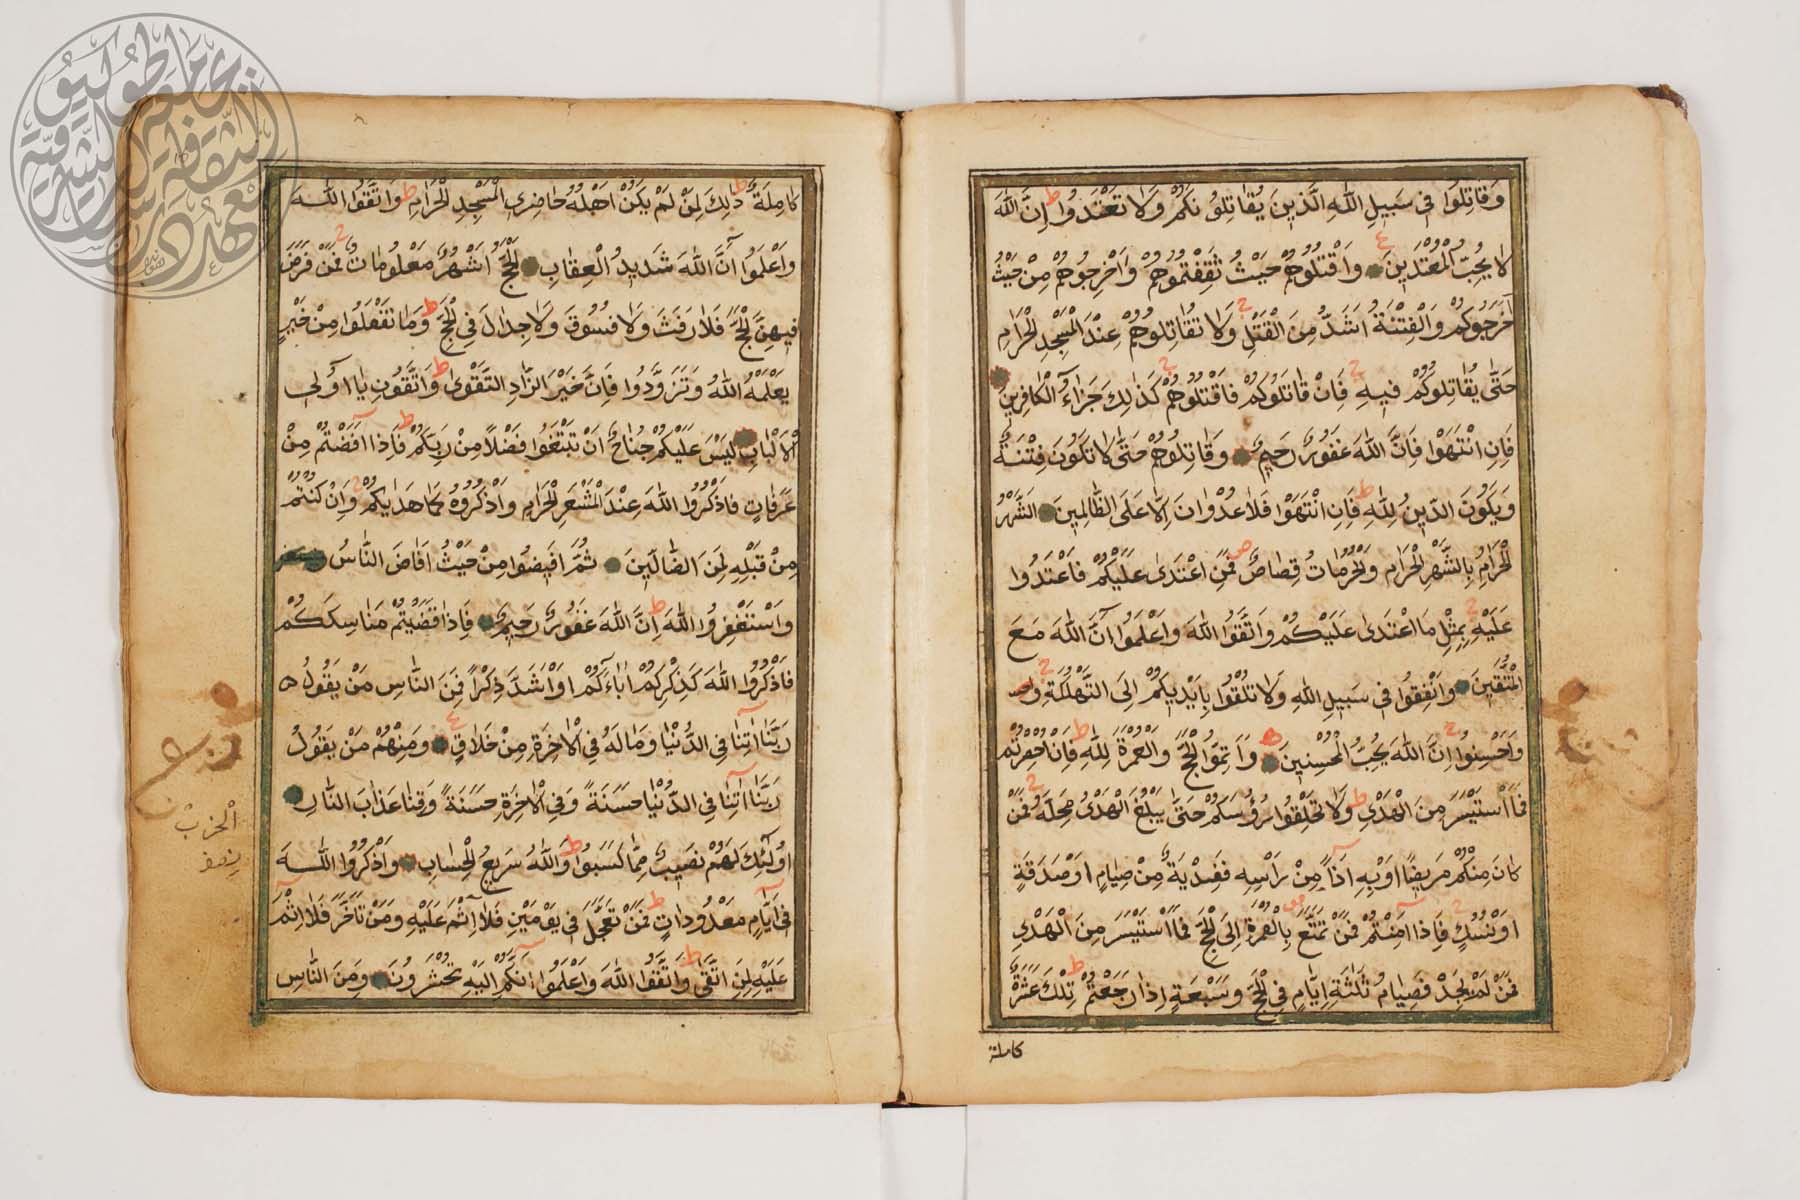 وَقَاتِلُوا فِي سَبِيلِ اللّٰهِ الَّذِينَ يُقَاتِلُونَكُمْ وَلَا تَعْتَدُوا ط اِنَّ اللّٰهَ
لَا يُحِبُّ الْمُعْتَدِينَ ع وَاقْتُلُوهُمْ حَيْثُ ثَقِفْتُمُوهُمْ وَاَخْرِجُوهُمْ مِنْ حَيْثُ
اَخْرَجُوكُمْ وَالْفِتْنَةُ اَشَدُّ مِنَ الْقَتْلِ ج وَلَا تُقَاتِلُوهُمْ عِنْدَ الْمَسْجِدِ الْحَرَامِ
حَتّٰى يُقَاتِلُوكُمْ فِيهِ ج فَاِنْ قَاتَلُوكُمْ فَاقْتُلُوهُمْ ج كَذٰلِكَ جَزَاءُ الْكَافِرِينَ
فَاِنِ انْتَهَوْا فَاِنَّ اللّٰهَ غَفُورٌ رَحِيمٌ وَقَاتِلُوهُمْ حَتّٰى لَا تَكُونَ فِتْنَةٌ
وَيَكُونَ الدِّينُ لِلّٰهِ ط فَاِنِ انْتَهَوْا فَلَا عُدْوَانَ اِلَّا عَلَى الظَّالِمِينَ الشَّهْرُ
الْحَرَامُ بِالشَّهْرِ الْحَرَامِ وَالْحُرُمَاتُ قِصَاصٌ ص فَمَنِ اعْتَدٰى عَلَيْكُمْ فَاعْتَدُوا
عَلَيْهِ بِمِثْلِ مَا اعْتَدٰى عَلَيْكُمْ وَاتَّقُوا اللّٰهَ وَاعْلَمُوا اَنَّ اللّٰهَ مَعَ
الْمُتَّقِينَ وَاَنْفِقُوا فِي سَبِيلِ اللّٰهِ وَلَا تُلْقُوا بِاَيْدِيكُمْ اِلَى التَّهْلُكَةِ ج
وَاَحْسِنُوا ج اِنَّ اللّٰهَ يُحِبُّ الْمُحْسِنِينَ وَاَتِمُّوا الْحَجَّ وَالْعُمْرَةَ لِلّٰهِ ط فَاِنْ اُحْصِرْتُمْ
فَمَا اسْتَيْسَرَ مِنَ الْهَدْيِ ط وَلَا تَحْلِقُوا رُؤُسَكُمْ حَتّٰى يَبْلُغَ الْهَدْيُ مَحِلَّهُ ج فَمَنْ
كَانَ مِنْكُمْ مَرِيضًا اَوْ بِهِ اَذًى مِنْ رَاْسِهِ فَفِدْيَةٌ مِنْ صِيَامٍ اَوْ صَدَقَةٍ
اَوْ نُسُكٍ ج فَاِذَا اَمِنْتُمْ فَمَنْ تَمَتَّعَ بِالْعُمْرَةِ اِلَى الْحَجِّ فَمَا اسْتَيْسَرَ مِنَ الْهَدْيِ
فَمَنْ لَمْ يَجِدْ فَصِيَامُ ثَلٰثَةِ اَيَّامٍ فِي الْحَجِّ وَسَبْعَةٍ اِذَا رَجَعْتُمْ ط تِلْكَ عَشَرَةٌ
كاملة
كَامِلَةٌ ط ذٰلِكَ لِمَنْ لَمْ يَكُنْ اَهْلُهُ حَاضِرِي الْمَسْجِدِ الْحَرَامِ ط وَاتَّقُوا اللّٰهَ
وَاعْلَمُوا اَنَّ اللّٰهَ شَدِيدُ الْعِقَابِ اَلْحَجُّ اَشْهُرٌ مَعْلُومَاتٌ ج فَمَنْ فَرَضَ
فِيهِنَّ الْحَجَّ فَلَا رَفَثَ وَلَا فُسُوقَ وَلَا جِدَالَ فِي الْحَجِّ ط وَمَا تَفْعَلُوا مِنْ خَيْرٍ
يَعْلَمْهُ اللّٰهُ وَتَزَوَّدُوا فَاِنَّ خَيْرَ الزَّادِ التَّقْوٰى ط وَاتَّقُونِ يَا اُولِي
الْاَلْبَابِ لَيْسَ عَلَيْكُمْ جُنَاحٌ اَنْ تَبْتَغُوا فَضْلًا مِنْ رَبِّكُمْ ط فَاِذَا اَفَضْتُمْ مِنْ
عَرَفَاتٍ فَاذْكُرُوا اللّٰهَ عِنْدَ الْمَشْعَرِ الْحَرَامِ وَاذْكُرُوهُ كَمَا هَدٰيكُمْ ج وَاِنْ كُنْتُمْ
مِنْ قَبْلِهِ لَمِنَ الضَّالِّينَ ثُمَّ اَفِيضُوا مِنْ حَيْثُ اَفَاضَ النَّاسُ
وَاسْتَغْفِرُوا اللّٰهَ ط اِنَّ اللّٰهَ غَفُورٌ رَحِيمٌ فَاِذَا قَضَيْتُمْ مَنَاسِكَكُمْ
فَاذْكُرُوا اللّٰهَ كَذِكْرِكُمْ اٰبَاءَكُمْ اَوْ اَشَدَّ ذِكْرًا فَمِنَ النَّاسِ مَنْ يَقُولُ
رَبَّنَا اٰتِنَا فِي الدُّنْيَا وَمَا لَهُ فِي الْاٰخِرَةِ مِنْ خَلَاقٍ ع وَمِنْهُمْ مَنْ يَقُولُ
رَبَّنَا اٰتِنَا فِي الدُّنْيَا حَسَنَةً وَفِي الْاٰخِرَةِ حَسَنَةً وَقِنَا عَذَابَ النَّارِ
اُولٰئِكَ لَهُمْ نَصِيبٌ مِمَّا كَسَبُوا ط وَاللّٰهُ سَرِيعُ الْحِسَابِ وَاذْكُرُوا اللّٰهَ
فِي اَيَّامٍ مَعْدُودَاتٍ ط فَمَنْ تَعَجَّلَ فِي يَوْمَيْنِ فَلَا اِثْمَ عَلَيْهِ وَمَنْ تَاَخَّرَ فَلَا اِثْمَ
عَلَيْهِ لِمَنِ اتَّقٰى ط وَاتَّقُوا اللّٰهَ وَاعْلَمُوا اَنَّكُمْ اِلَيْهِ تُحْشَرُونَ وَمِنَ النَّاسِ
الحزب
نصف